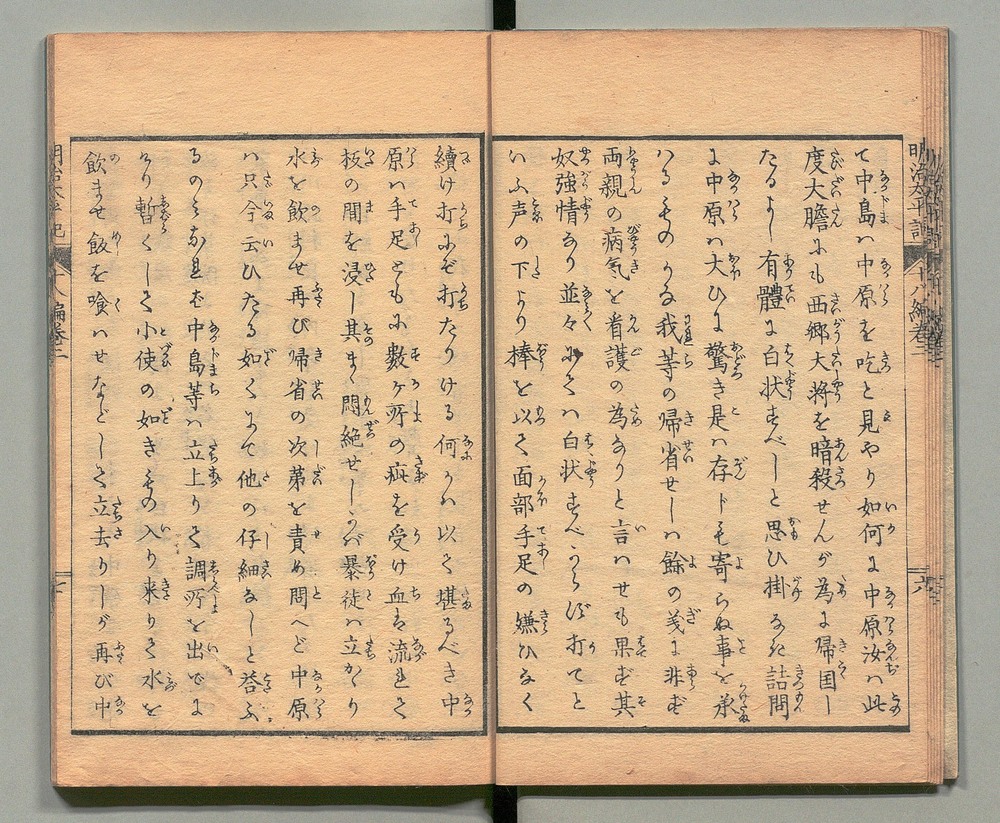 て中島ハ中原を吃と見やり如何に中原汝ハ此
度大膽にも西郷大将を暗殺せんが為に帰国し
たるよし有體に白状すべしと思ひ掛なき詰問
に中原ハ大ひに驚き是ハ存トも寄らぬ事を承
ハるものかな我等の帰省せしハ餘の義に非ず
両親の病気を看護の為なりと言ハせも果ず其
奴強情なり並々にてハ白状すべからず打てと
いふ声の下より棒を以て面部手足の嫌ひなく
續け打にぞ打たりける何かハ以て堪るべき中
原ハ手足ともに数ヶ所の疵を受け血を流して
板の間を浸し其まゝ悶絶せしかバ暴徒ハ立かゝり
水を飲ませ再び帰省の次第を責め問へど中原
ハ只今云ひたる如くにて他の仔細なしと答ふ
るのみなれば中島等ハ立上りて調所を出でに
けり暫くして小使の如きもの入り来りて水を
飲ませ飯を喰ハせなどして立去りしが再び中
明治太平記 十八編巻二 六
明治太平記 八編巻二 七